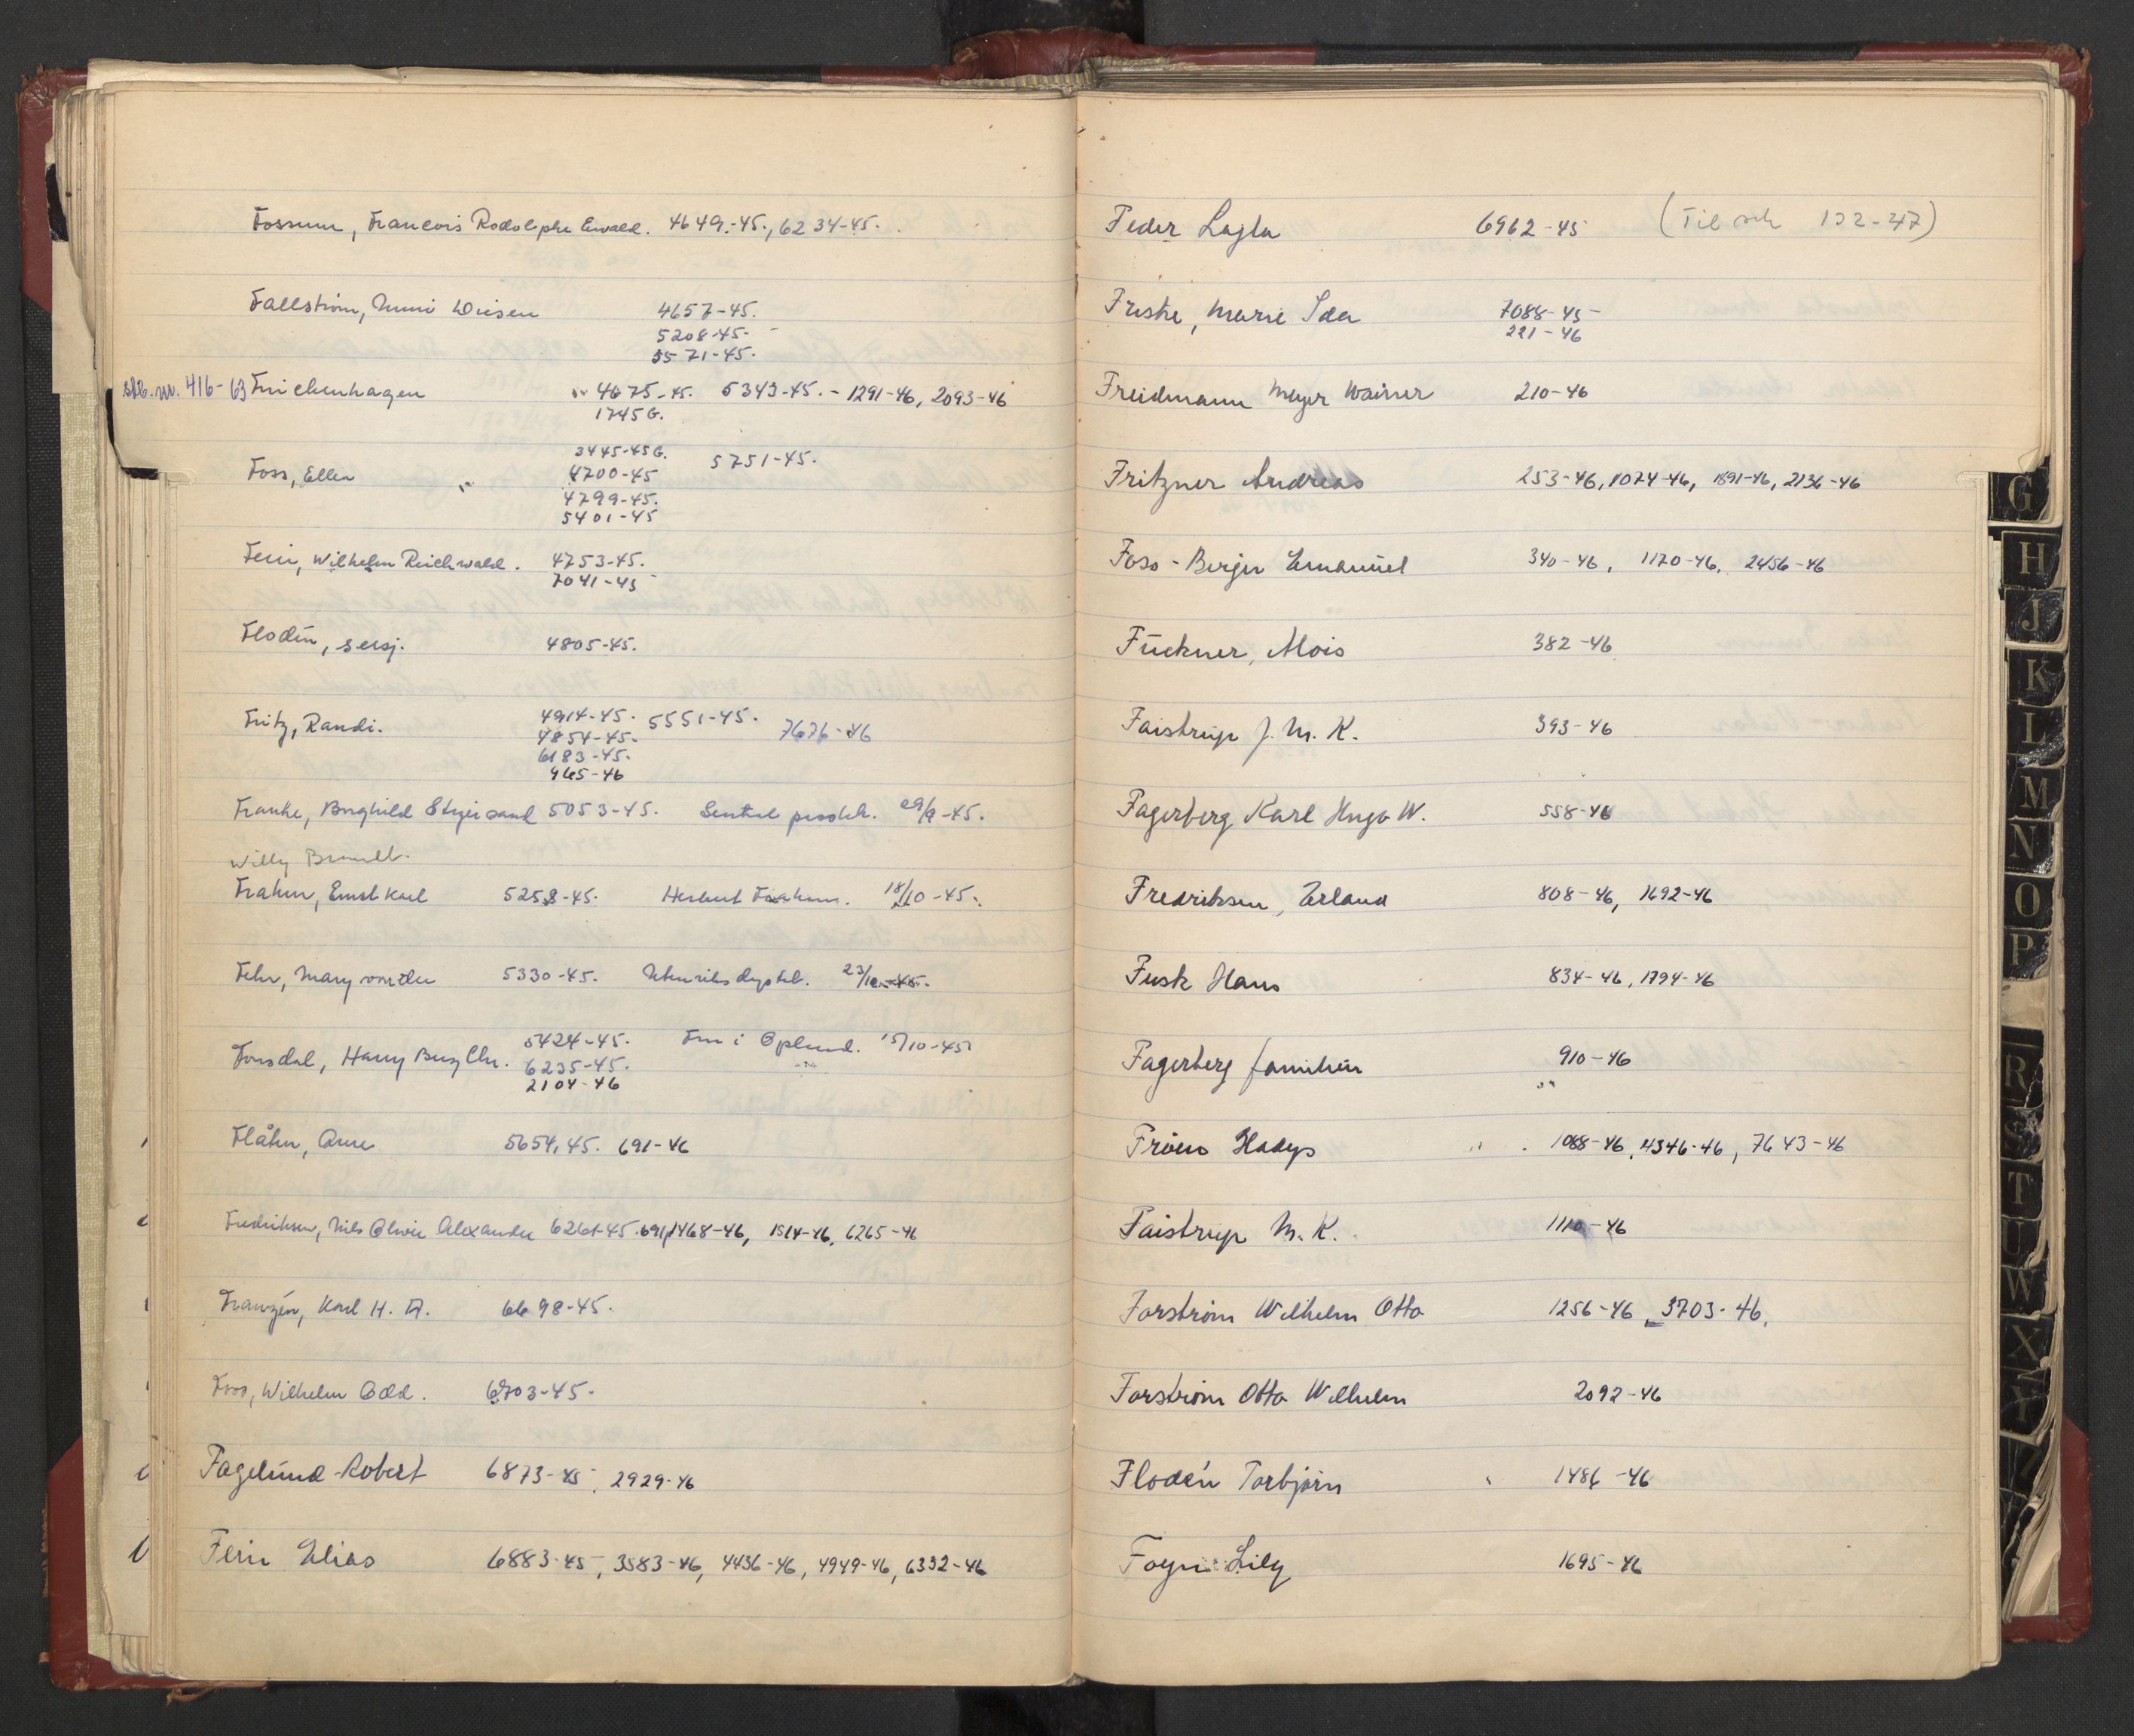 Fossum, Francois Rodolphe Ewald. 4649.-45., 6234-45.
Fallström, Mimi Diisen 4657-45.
5208-45.
5571-45.
stb. nr. 416-63 Frichenhagen 4675-45. 5343-45. - 1291-46, 2093-46
1745 G.
3445-45G. 5751-45.
Foss, Ellen 4700-45
4799-45.
5401-45
Fein, Wilhelm Reichwald. 4753-45.
7041-45
Flodin, sersj. 4805-45.
Fritz, Randi. 4914-45. 5551-45. 7676-46
4854-45.
6183-45.
465-46
Franke, Borghild 5053-45. Sentral 29/9-45.
Willy Brandt.
Frahm, Ernst Karl 5258-45. Herbert Frahm. 18/10-45.
Fehr, Mary von der 5330-45. Utenriksdeptet. 23/10-45.
5424-45. Frm i Opland. 15/10-45
Fonsdal, Harry 6235-45.
2104-46
Flåhn, Arne 5654,45. 691-46
Fredriksen, Nils Olwie Alexander 6261-45. 691, 1468-46, 1514-46, 6265-46
Franzén, Karl H. A. 6698-45.
Foss, Wilhelm Odd. 6703-45.
Fagelund Robert 6873-45, 2929-46
Fein Elias 6883-45, 3583-46, 4436-46, 4949-46, 6332-46
Feder Lagla 6962-45 (Til sch 132-47)
Friske, Marie Ida 7088-45
221-46
Freidmann Meyer Wainer 210-46
Fritzner Andreas 253-46, 1074-46, 1891-46, 2136-46
Foss-Berger Emanuel 340-46, 1170-46, 2456-46
Fückner, Alois 382-46
Faistrup J. M. K. 393-46
Fagerberg Karl Hugo W. 558-46
Fredriksen, Erland 808-46, 1692-46
Fusk Hans 834-46, 1794-46
Fagerberg familien 910-46
Fröen Gladys 1088-46, 4346-46, 7643-46
Faistrup M. K. 1110-46
Forström Wilhelm Otto 1256-46, 3703-46,
Forström Otto Wilhelm 2092-46
Flodén Torbjørn 1486-46
Foyn Lily 1695-46
G
H
J
K
L
M
N
O
P
R
S
T
U
W
X
Y